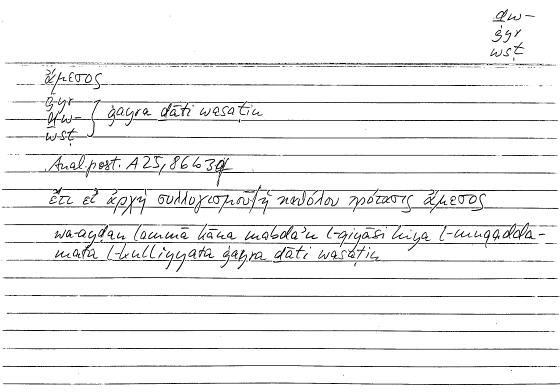 ḏw-
ġyr
wsṭ
ἄμεσος
ġyr
ḏw- } ġayra ḏāti wasaṭin
wsṭ
Anal. post. A 25, 86 b 30
ἔτι εἰ ἀρχὴ συλλογισμοῦ ἡ καθόλου πρότασις ἄμεσος
wa-ayḍan lammā kāna mabdaʾu l-qiyāsi hiya l-muqadda-
mata l-kulliyyata ġayra ḏāti wasaṭin